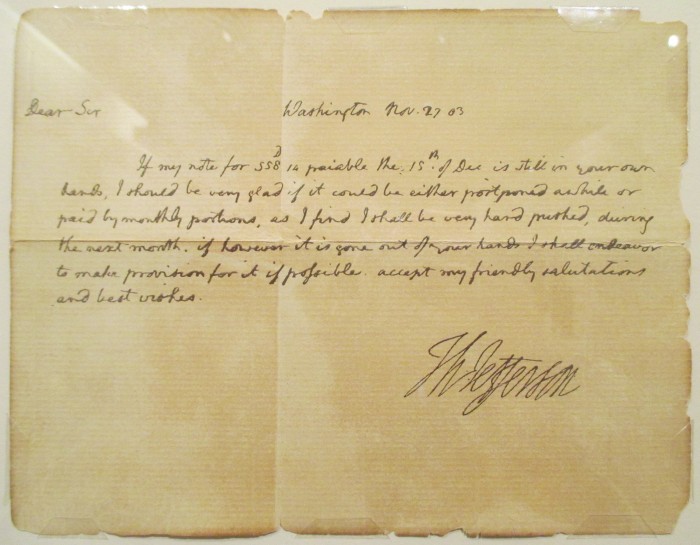 Dear Sir Washington Nov. 27 03
If my note for 558 D 14 paiable the 15th. of Dec is still in your own
hands, I should be very glad if it could be either postponed awhile or
paid by monthly portions, as I find I shall be very hard pushed, during
the next month. if however it is gone out of your hands I shall endeavor
to make provision for it if possible. accept my friendly salutations
and best wishes.
Th Jefferson